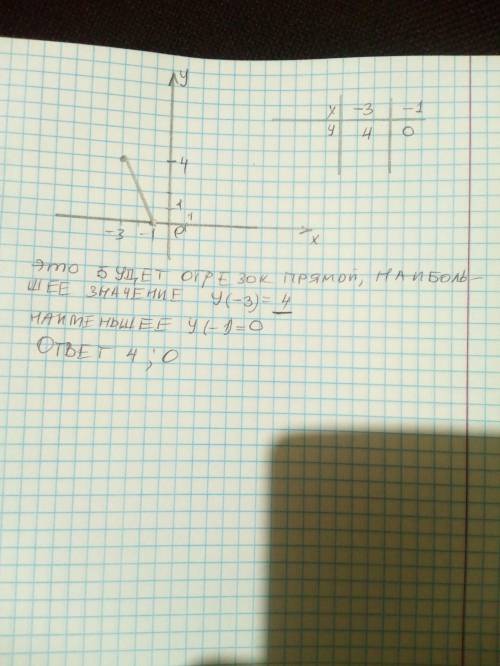 y
x -3 -1
y 4 0
4
1
-3 -1 0 1
x
ЭТО БУДЕТ ОТРЕЗОК ПРЯМОЙ, НАИБОЛЬ-
ШЕЕ ЗНАЧЕНИЕ y(-3)=4
НАИМЕНЬШЕЕ y(-1=0
ОТВЕТ 4 ; 0